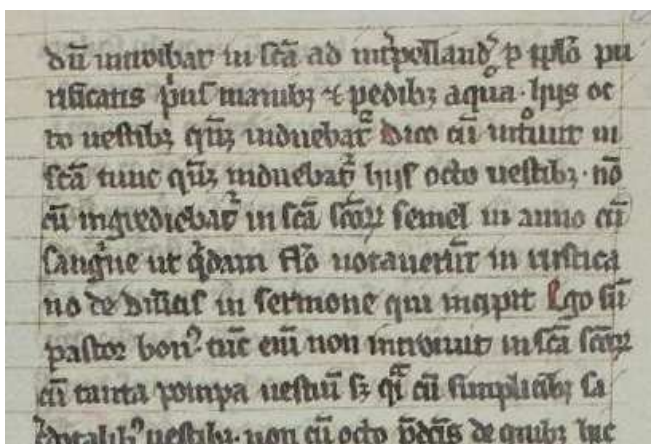 dū introibat in scā ad int̄pellandꝰ ꝑ ppło pu
rificatis pͥus manibꝫ ⁊ pedibꝫ aqua · hijs oc
to uestibꝫ qn̄qꝫ induebat᷑ Dico cū introiuit in
scā tunc qn̄qꝫ induebat᷑ hijs octo uestibꝫ · nō
cū ingrediebat᷑ in scā scōꝝ semel in anno cū
sangͥne ut qͥdam notauerūt in
no de in sermone qui incipit Ego sū
pastor bonꝰ · tūc eni̅ non introiuit in scā scōꝝ
cū tanta pompa uestiū sꝫ cū simplicibꝫ sa
cerdotalibꝫ uestibꝫ · non cū octo p̄dcīs de quibꝫ huc